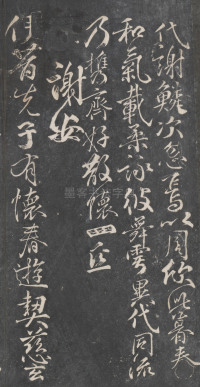 代謝鱗次忽焉以周欣此暮春
和氣載柔詠彼舞雩異代同流
乃攜齊好散懷一丘
謝安
伊昔先子有懷春遊契茲言